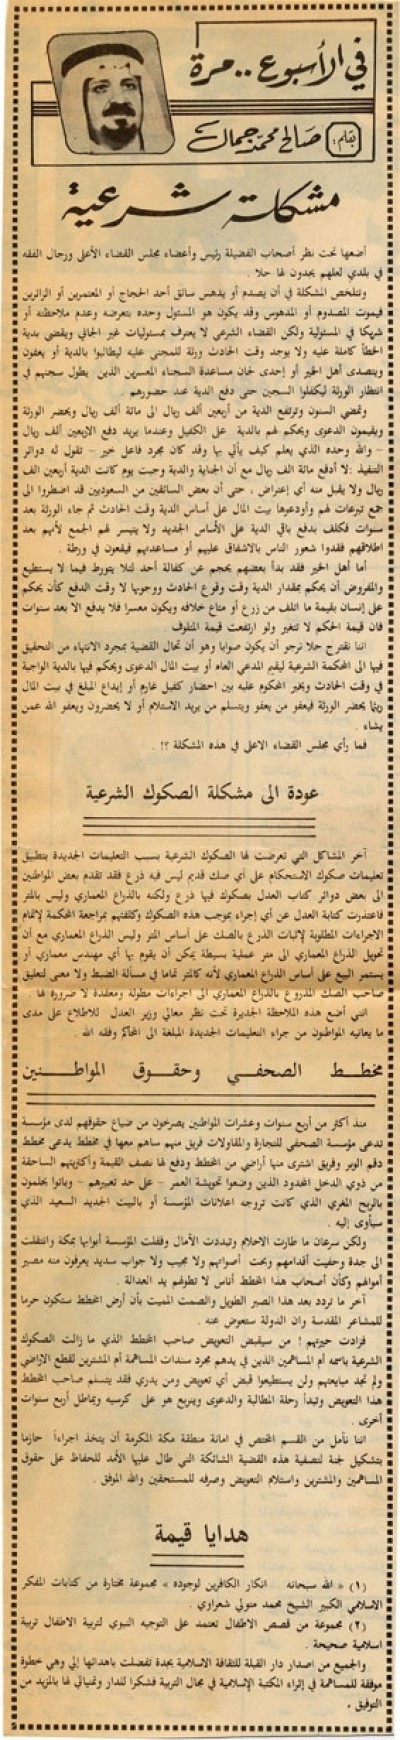 في الأسبوع .. مرة
بقلم : صالح محمد جمال
مشكلة شرعية
أضعها تحت نظر أصحاب الفضيلة رئيس وأعضاء مجلس القضاء الأعلى ورجال الفقه
في بلدي لعلهم يجدون لها حلا .
وتتلخص المشكلة في أن يصدم أو يدهس سائق أحد الحجاج أو المعتمرين أو الزائرين
فيموت المصدوم أو المدهوس وقد يكون هو المسئول وحده بتعرضه وعدم ملاحظته أو
شريكا في المسئولية ولكن القضاء الشرعي لا يعترف بمسئوليات غير الجاني ويقضي بدية
الخطأ كاملة عليه ولا يوجد وقت الحادث ورثة للمجنى عليه ليطالبوا بالدية أو يعفون
ويتصدى أهل الخير أو إحدى لجان مساعدة السجناء المعسرين الذين يطول سجنهم في
انتظار الورثة ليكفلوا السجين حتى دفع الدية عند حضورهم .
وتمضي السنون وترتفع الدية من أربعين ألف ريال الى مائة ألف ريال ويحضر الورثة
ويقيمون الدعوى ويحكم لهم بالدية على الكفيل وعندما يريد دفع الاربعين ألف ريال
– والله وحده الذي يعلم كيف يأتي بها وقد كان مجرد فاعل خير – تقول له دوائر
التنفيذ : لا أدفع مائة الف ريال مع أن الجناية والدية وجبت يوم كانت الدية أربعين الف
ريال ولا يقبل منه أي إعتراض . حتى أن بعض السائقين من السعوديين قد اضطروا الى
جمع تبرعات لهم وأودعوها بيت المال على أساس الدية وقت الحادث ثم جاء الورثة بعد
سنوات فكلف بدفع باقي الدية على الأساس الجديد ولا يتيسر لهم الجمع لأنهم بعد
اطلاقهم فقدوا شعور الناس بالاشفاق عليهم أو مساعدتهم فيقعون في ورطة .
أما أهل الخير فقد بدأ بعضهم يحجم عن كفالة أحد لئلا يتورط فيما لا يستطيع
والمفروض أن يحكم بمقدار الدية وقت وقوع الحادث ووجوبها لا وقت الدفع كأن يحكم
على إنسان بقيمة ما اتلف من زرع أو متاع خلافه ويكون معسرا فلا يدفع الا بعد سنوات
فان قيمة الحكم لا تتغير ولو ارتفعت قيمة المتلوف .
اننا نقترح حلا نرجو أن يكون صوابا وهو أن تحال القضية بمجرد الانتهاء من التحقيق
فيها الى المحكمة الشرعية ليقيم المدعي العام أو بيت المال الدعوى ويحكم فيها بالدية الواجبة
في وقت الحادث ويخير المحكوم عليه بين احضار كفيل غارم أو إيداع المبلغ في بيت المال
ريثما يحضر الورثة فيعفو من يعفو ويتسلم من يريد الاستلام أو لا يحضرون ويعفو الله عمن
يشاء .
فما رأي مجلس القضاء الاعلى في هذه المشكلة ؟! .
عودة الى مشكلة الصكوك الشرعية
آخر المشاكل التي تعرضت لها الصكوك الشرعية بسبب التعليمات الجديدة بتطبيق
تعليمات صكوك الاستحكام على أي صك قديم ليس فيه ذرع فقد تقدم بعض المواطنين
الى بعض دوائر كتاب العدل بصكوك فيها ذرع ولكنه بالذراع المعماري وليس بالمتر
فاعتذرت كتابة العدل عن أي إجراء بموجب هذه الصكوك وكلفتهم بمراجعة المحكمة لإتمام
الاجراءات المطلوبة لإثبات الذرع بالصك على أساس المتر وليس الذراع المعماري مع أن
تحويل الذراع المعماري الى متر عملية بسيطة يمكن أن يقوم بها أي مهندس معماري أو
يستمر البيع على أساس الذراع المعماري لأنه كالمتر تماما في مسألة الضبط ولا معنى لتعليق
صاحب الصك المذروع بالذراع المعماري الى اجراءات مطولة ومعقدة لا ضرورة لها .
انني أضع هذه الملاحظة الجديرة تحت نظر معالي وزير العدل للاطلاع على مدى
ما يعانيه المواطنون من جراء التعليمات الجديدة المبلغة الى المحاكم وفقه الله .
مخطط الصحفي وحقوق المواطنين
منذ أكثر من أربع سنوات وعشرات المواطنين يصرخون من ضياع حقوقهم لدى مؤسسة
تدعى مؤسسة الصحفي للتجارة والمقاولات فريق منهم ساهم معها في مخطط يدعى مخطط
دقم الوبر وفريق اشترى منها أراضي من المخطط ودفع لها نصف القيمة وأكثريتهم الساحقة
من ذوي الدخل المحدود الذين وضعوا تحويشة العمر – على حد تعبيرهم – وباتوا يحلمون
بالربح المغري الذي كانت تروجه اعلانات المؤسسة أو بالبيت الجديد السعيد الذي
سيأوى إليه .
ولكن سرعان ما طارت الاحلام وتبددت الآمال وقفلت المؤسسة أبوابها بمكة وانتقلت
الى جدة وحفيت أقدامهم وبحت أصواتهم ولا مجيب ولا جواب سديد يعرفون منه مصير
أموالهم وكأن أصحاب هذا المخطط أناس لا تطولهم يد العدالة .
آخر ما تردد بعد هذا الصبر الطويل والصمت المميت بأن أرض المخطط ستكون حرما
للمشاعر المقدسة وان الدولة ستعوض عنه .
فزادت حيرتهم ! من سيقبض التعويض صاحب المخطط الذي ما زالت الصكوك
الشرعية باسمه أم المساهمين الذين في يدهم مجرد سندات المساهمة أم المشترين لقطع الاراضي
ولم تجد مبايعتهم ولن يستطيعوا قبض أي تعويض ومن يدري فقد يتسلم صاحب المخطط
هذا التعويض وتبدأ رحلة المطالبة والدعوى ويتربع هو على كرسيه ويماطل أربع سنوات
أخرى .
اننا نأمل من القسم المختص في امانة منطقة مكة المكرمة أن يتخذ اجراءاً حازما
بتشكيل لجنة لتصفية هذه القضية الشائكة التي طال عليها الأمد للحفاظ على حقوق
المساهمين والمشترين واستلام التعويض وصرفه للمستحقين والله الموفق .
هدايا قيمة
(١) « الله سبحانه انكار الكافرين لوجوده » مجموعة مختارة من كتابات المفكر
الاسلامي الكبير الشيخ محمد متولي شعراوي .
(٢) مجموعة من قصص الاطفال تعتمد على التوجيه النبوي لتربية الاطفال تربية
اسلامية صحيحة .
والجميع من اصدار دار القبلة للثقافة الاسلامية بجدة تفضلت باهدائها إلي وهي خطوة
موفقة للمساهمة في إثراء المكتبة الإسلامية في مجال التربية فشكرا للدار وتمنياتي لها بالمزيد من
التوفيق .